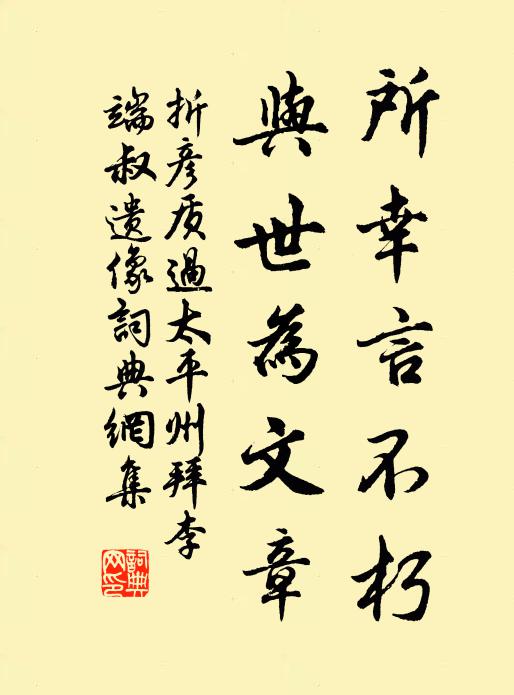 所幸言不朽
與世為文章
折彦质過太平州拜李
端叔遗像詞典網集
詞典網印